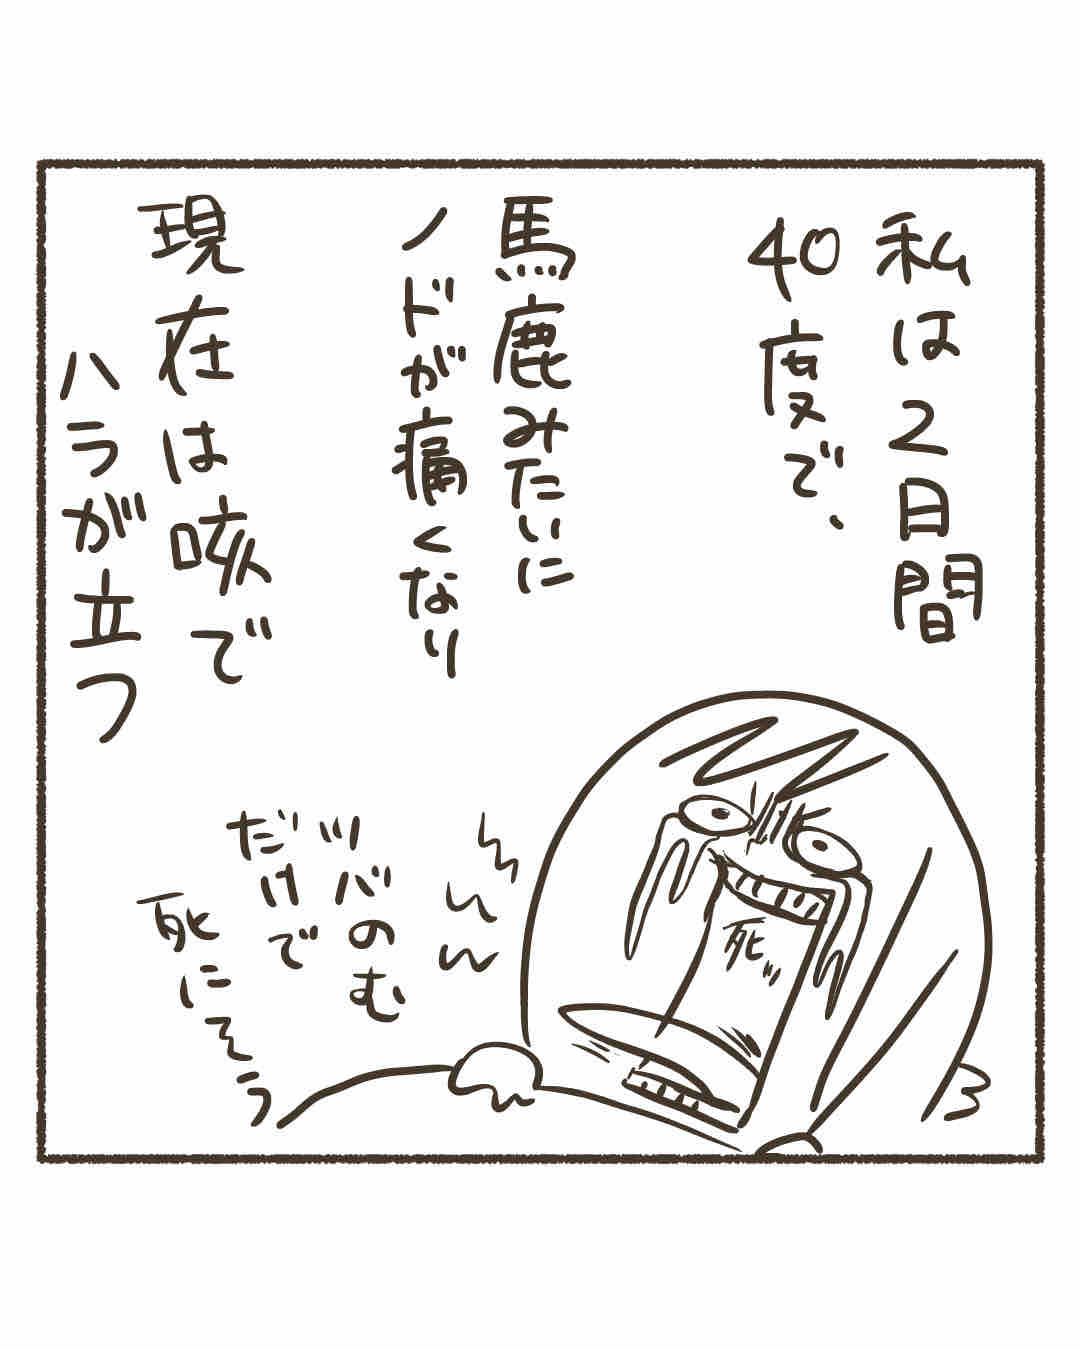 私は2日間
40度で、
馬鹿みたいに
ノドが痛くなり
現在は咳で
ハラが立つ
ツバのむ
だけで
死にそう
死